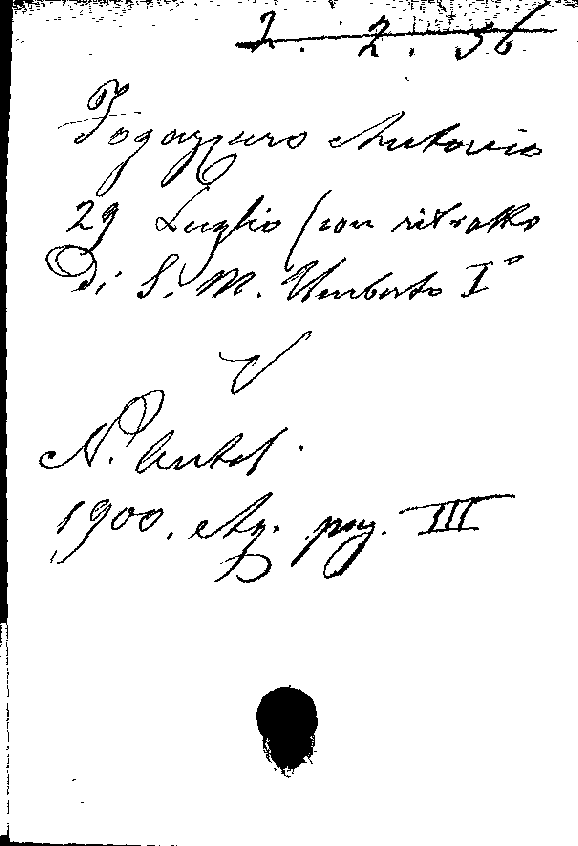 2. 2. 36
Fogazzaro Antonio
29 Luglio (con ritratto
di S. M. Umberto I°
V
N. Antol.
1900. Ag. pag. III